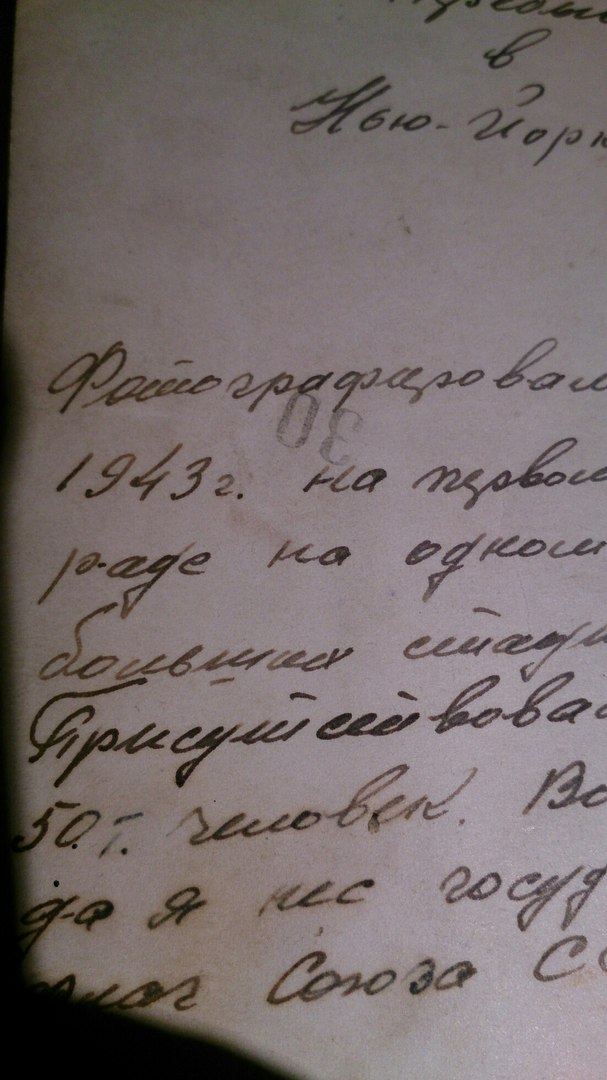 в
Нью-Йорк
Фотографировал
1943г. на первом
30
раде на одном
больших стади
Присутствова
50.т. человек. Во
да я нес госуд
флаг Союза С